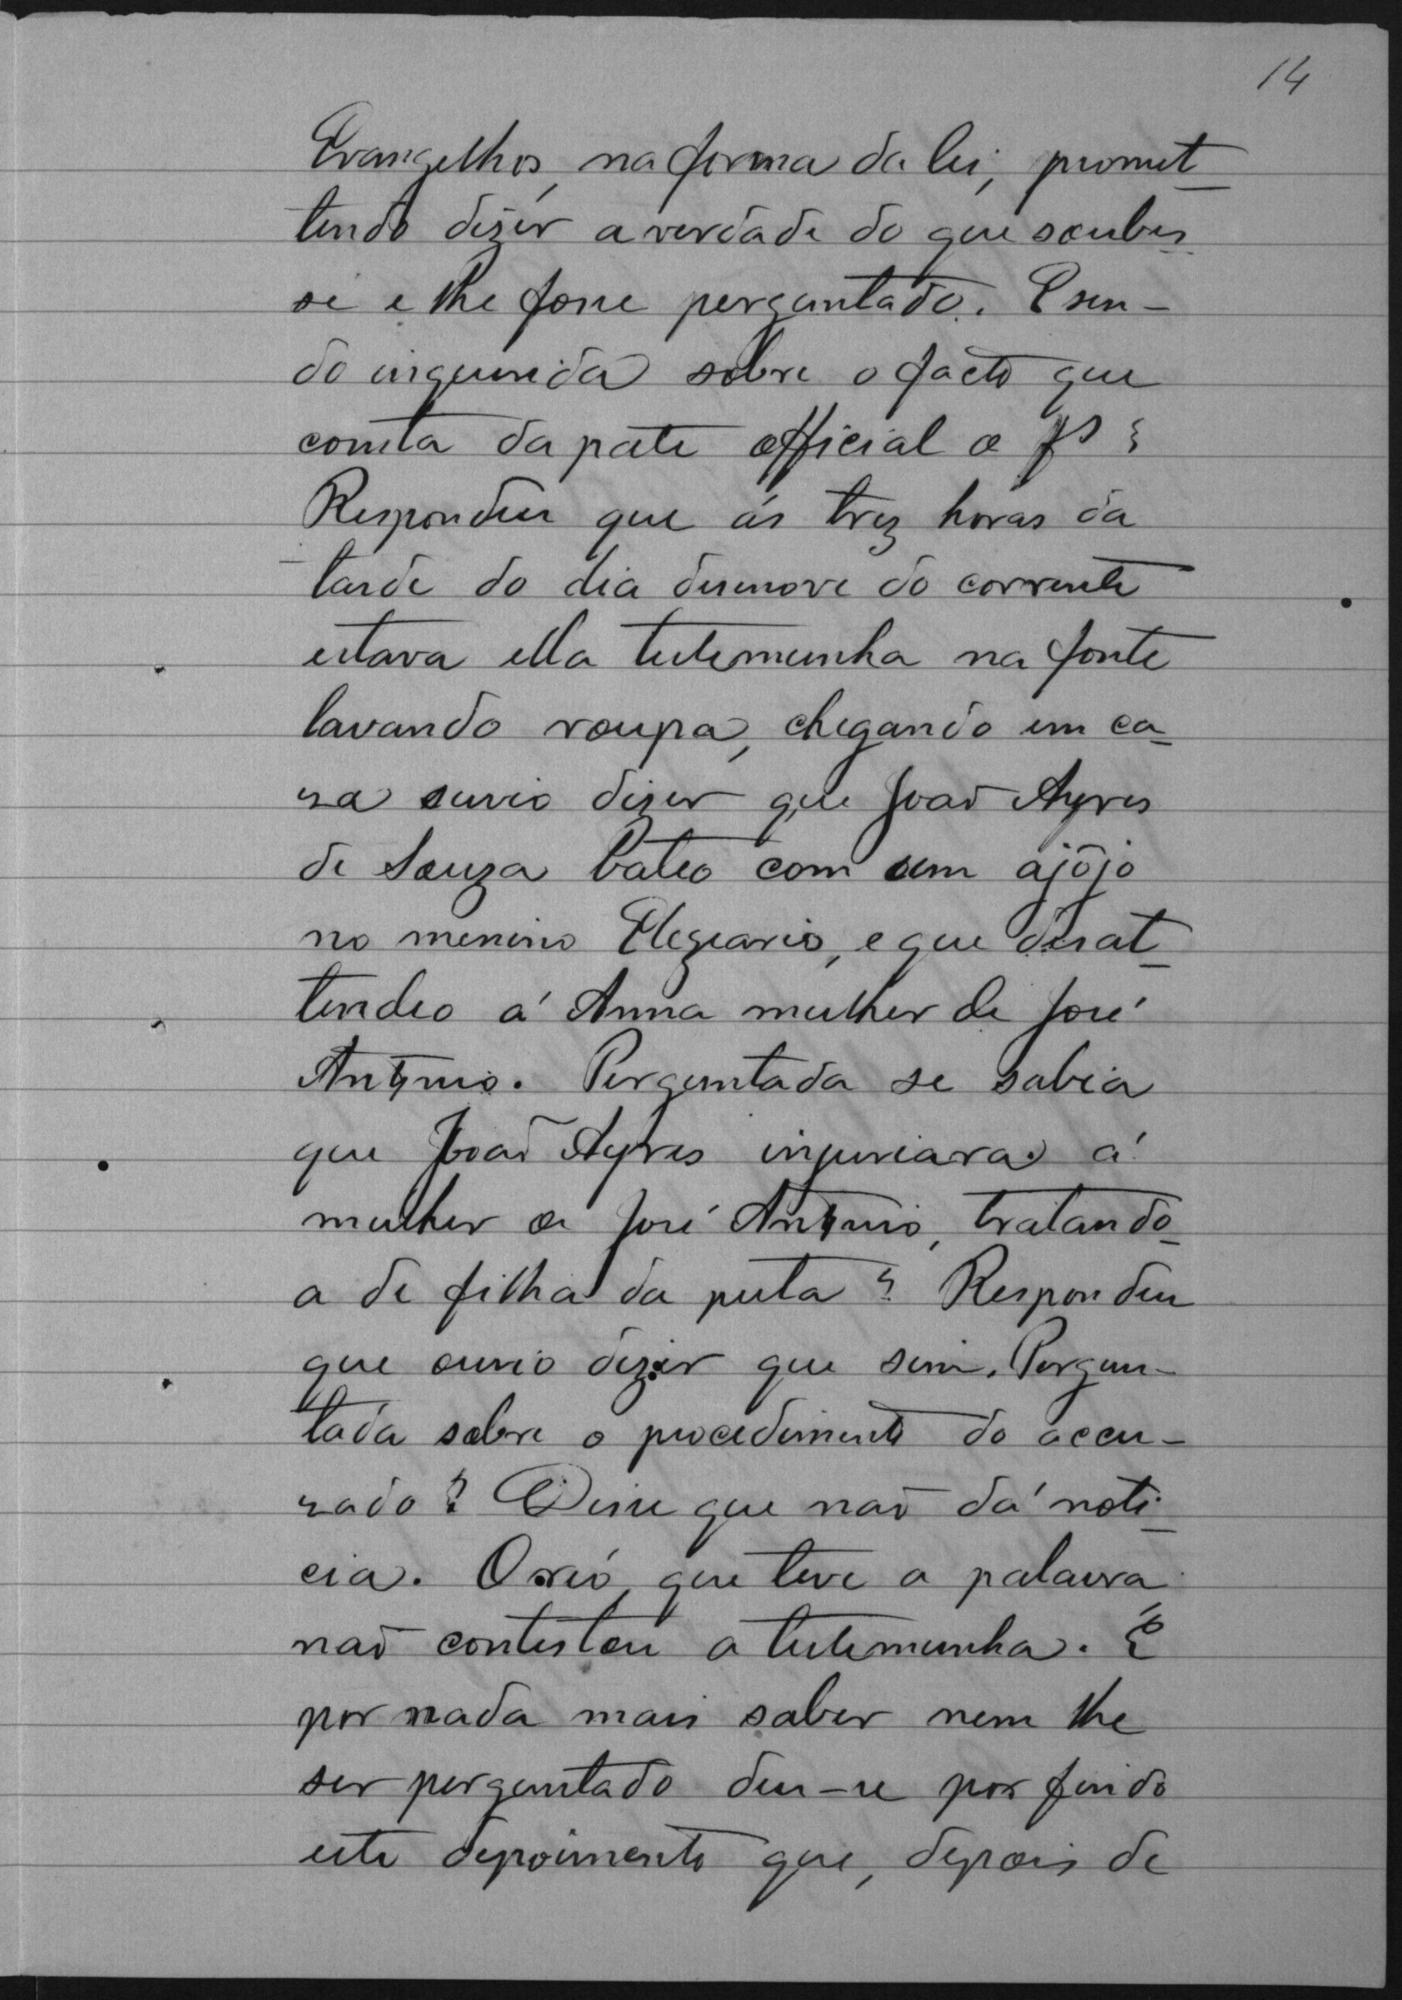 14
Evangelhos, na forma da lei, promet-
tendo dizer a verdade do que soubes-
se e lhe fosse perguntado. E sen-
do inquerida sobre o facto que
consta da pate official a f?
Respondeu que ás trez horas da
tarde do dia desenove do corrente
estava ella testemunha na fonte
lavando roupa, chegando em ca-
za ouvio dizer que João Ayres
de Souza bateo com um ajôjo
no menino Eleziario, e que desat-
tendeo á Anna mulher de José
Antonio. Perguntada se sabia
que João Ayres injuriara á
mulher de José Antonio, tratando-
a de filha da puta? Respondeu
que ouvio dizer que sim. Pergun-
tada sobre o procedimento do accu-
zado? Disse que não dá noti-
cia. O réo, que teve a palavra
não contestou a testemunha. E
por nada mais saber nem lhe
ser perguntado deu-se por findo
este depoimento que, depois de